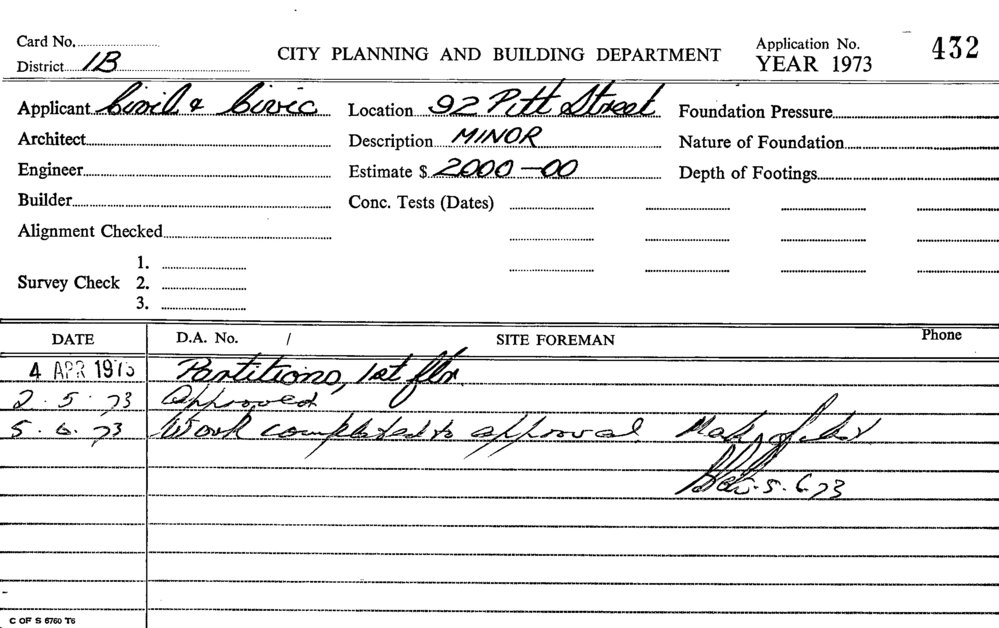 Card No.
District 1B
CITY PLANNING AND BUILDING DEPARTMENT
Application No. 432
YEAR 1973
Applicant Civil & Civic
Location 92 Pitt Street
Foundation Pressure
Architect
Description MINOR
Nature of Foundation
Engineer
Estimate $ 2000-00
Depth of Footings
Builder
Conc. Tests (Dates)
Alignment Checked
Survey Check
1.
2.
3.
DATE D.A. No. / SITE FOREMAN Phone
4 APR 1973 Partitions, 1st flr
2.5.73 Approved
5.6.73 Work completed to approval
5.6.73
C OF S 6760 T6